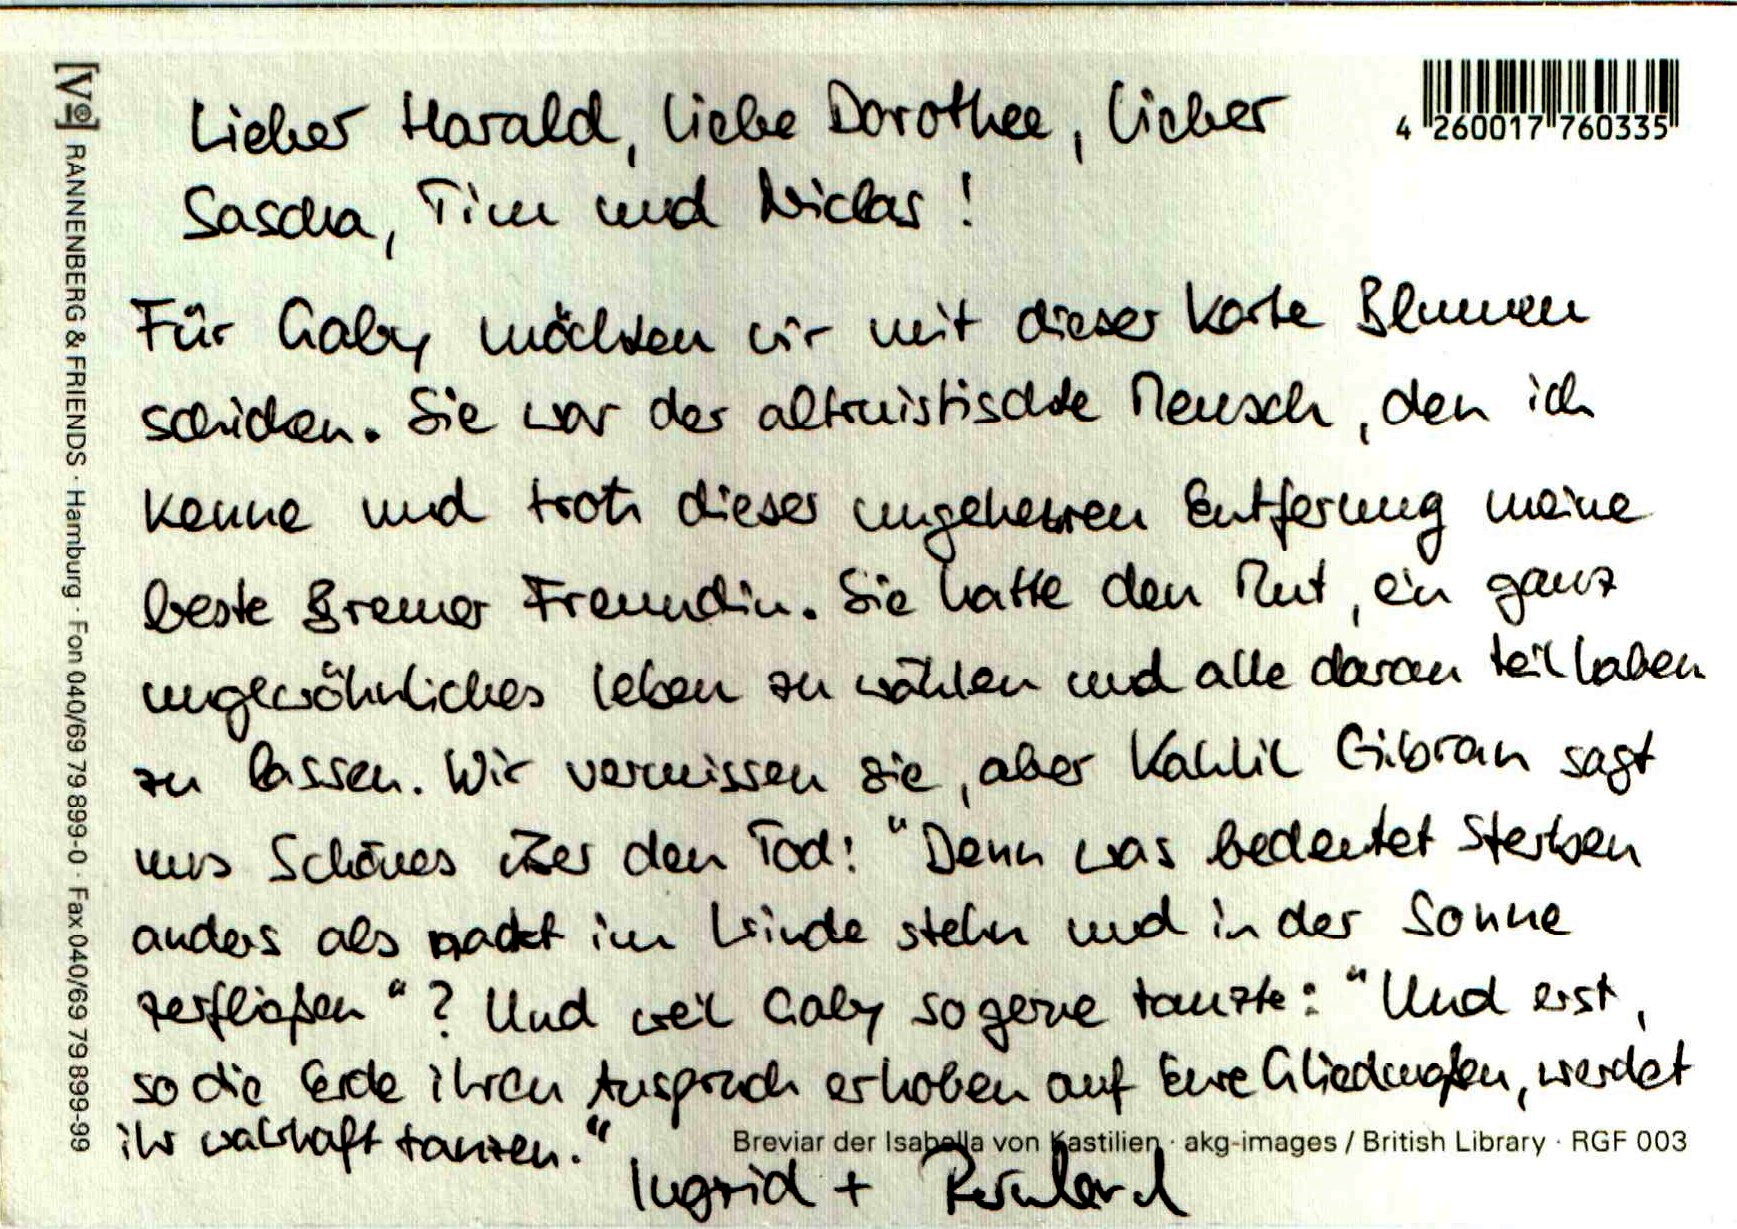 Lieber Harald, liebe Dorothee, lieber
4 260017 760335
Sascha, Tim und Niclas!
Für Gaby möchten wir mit dieser Karte Blumen
schicken. Sie war der altruistischste Mensch, den ich
kenne und trotz dieser ungeheuren Entfernung meine
beste Bremer Freundin. Sie hatte den Mut, ein ganz
ungewöhnliches Leben zu wählen und alle daran teilhaben
zu lassen. Wir vermissen sie, aber Kahlil Gibran sagt
uns Schönes über den Tod: "Denn was bedeutet Sterben
anders als nackt im Winde stehn und in der Sonne
zerfließen"? Und weil Gaby so gerne tanzte: "Und erst,
so die Erde ihren Anspruch erhoben auf Eure Gliedmaßen, werdet
ihr wahrhaft tanzen."
Breviar der Isabella von Kastilien · akg-images / British Library · RGF 003
Ingrid + Reinhard
[V®] RANNENBERG & FRIENDS · Hamburg · Fon 040/69 79 899-0 · Fax 040/69 79 899-99